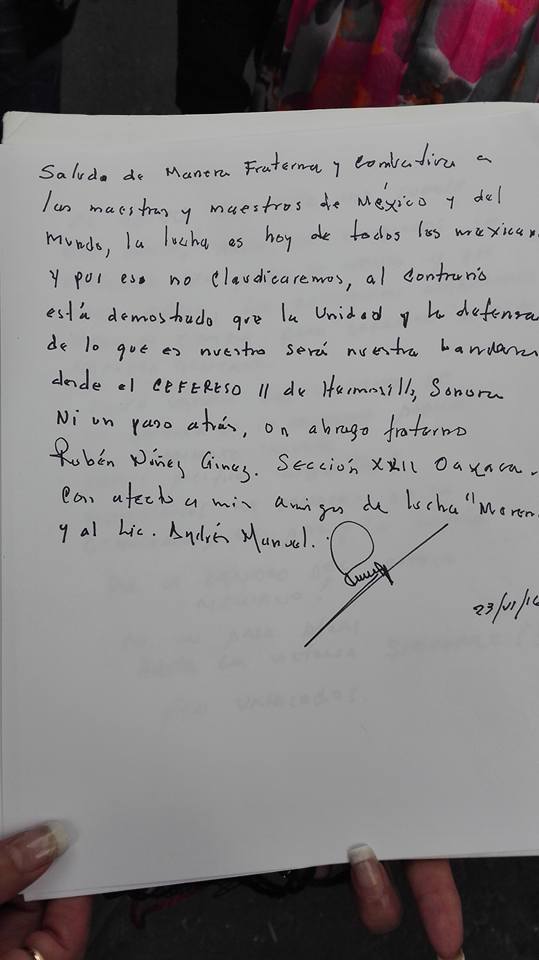 Saludo de Manera Fraterna y combativa a
las maestras y maestros de México y del
Mundo, la lucha es hoy de todos los mexican
y por eso no claudicaremos, al contrario
está demostrado que la Unidad y la defensa
de lo que es nuestro será nuestra bandera
desde el CEFERESO 11 de Hermosillo, Sonora
Ni un paso atrás, un abrazo fraterno
Rubén Núñez Ginez. Sección XXII Oaxaca.
Con afecto a mis amigos de lucha "Moren
y al Lic. Andrés Manuel.
23/VI/16